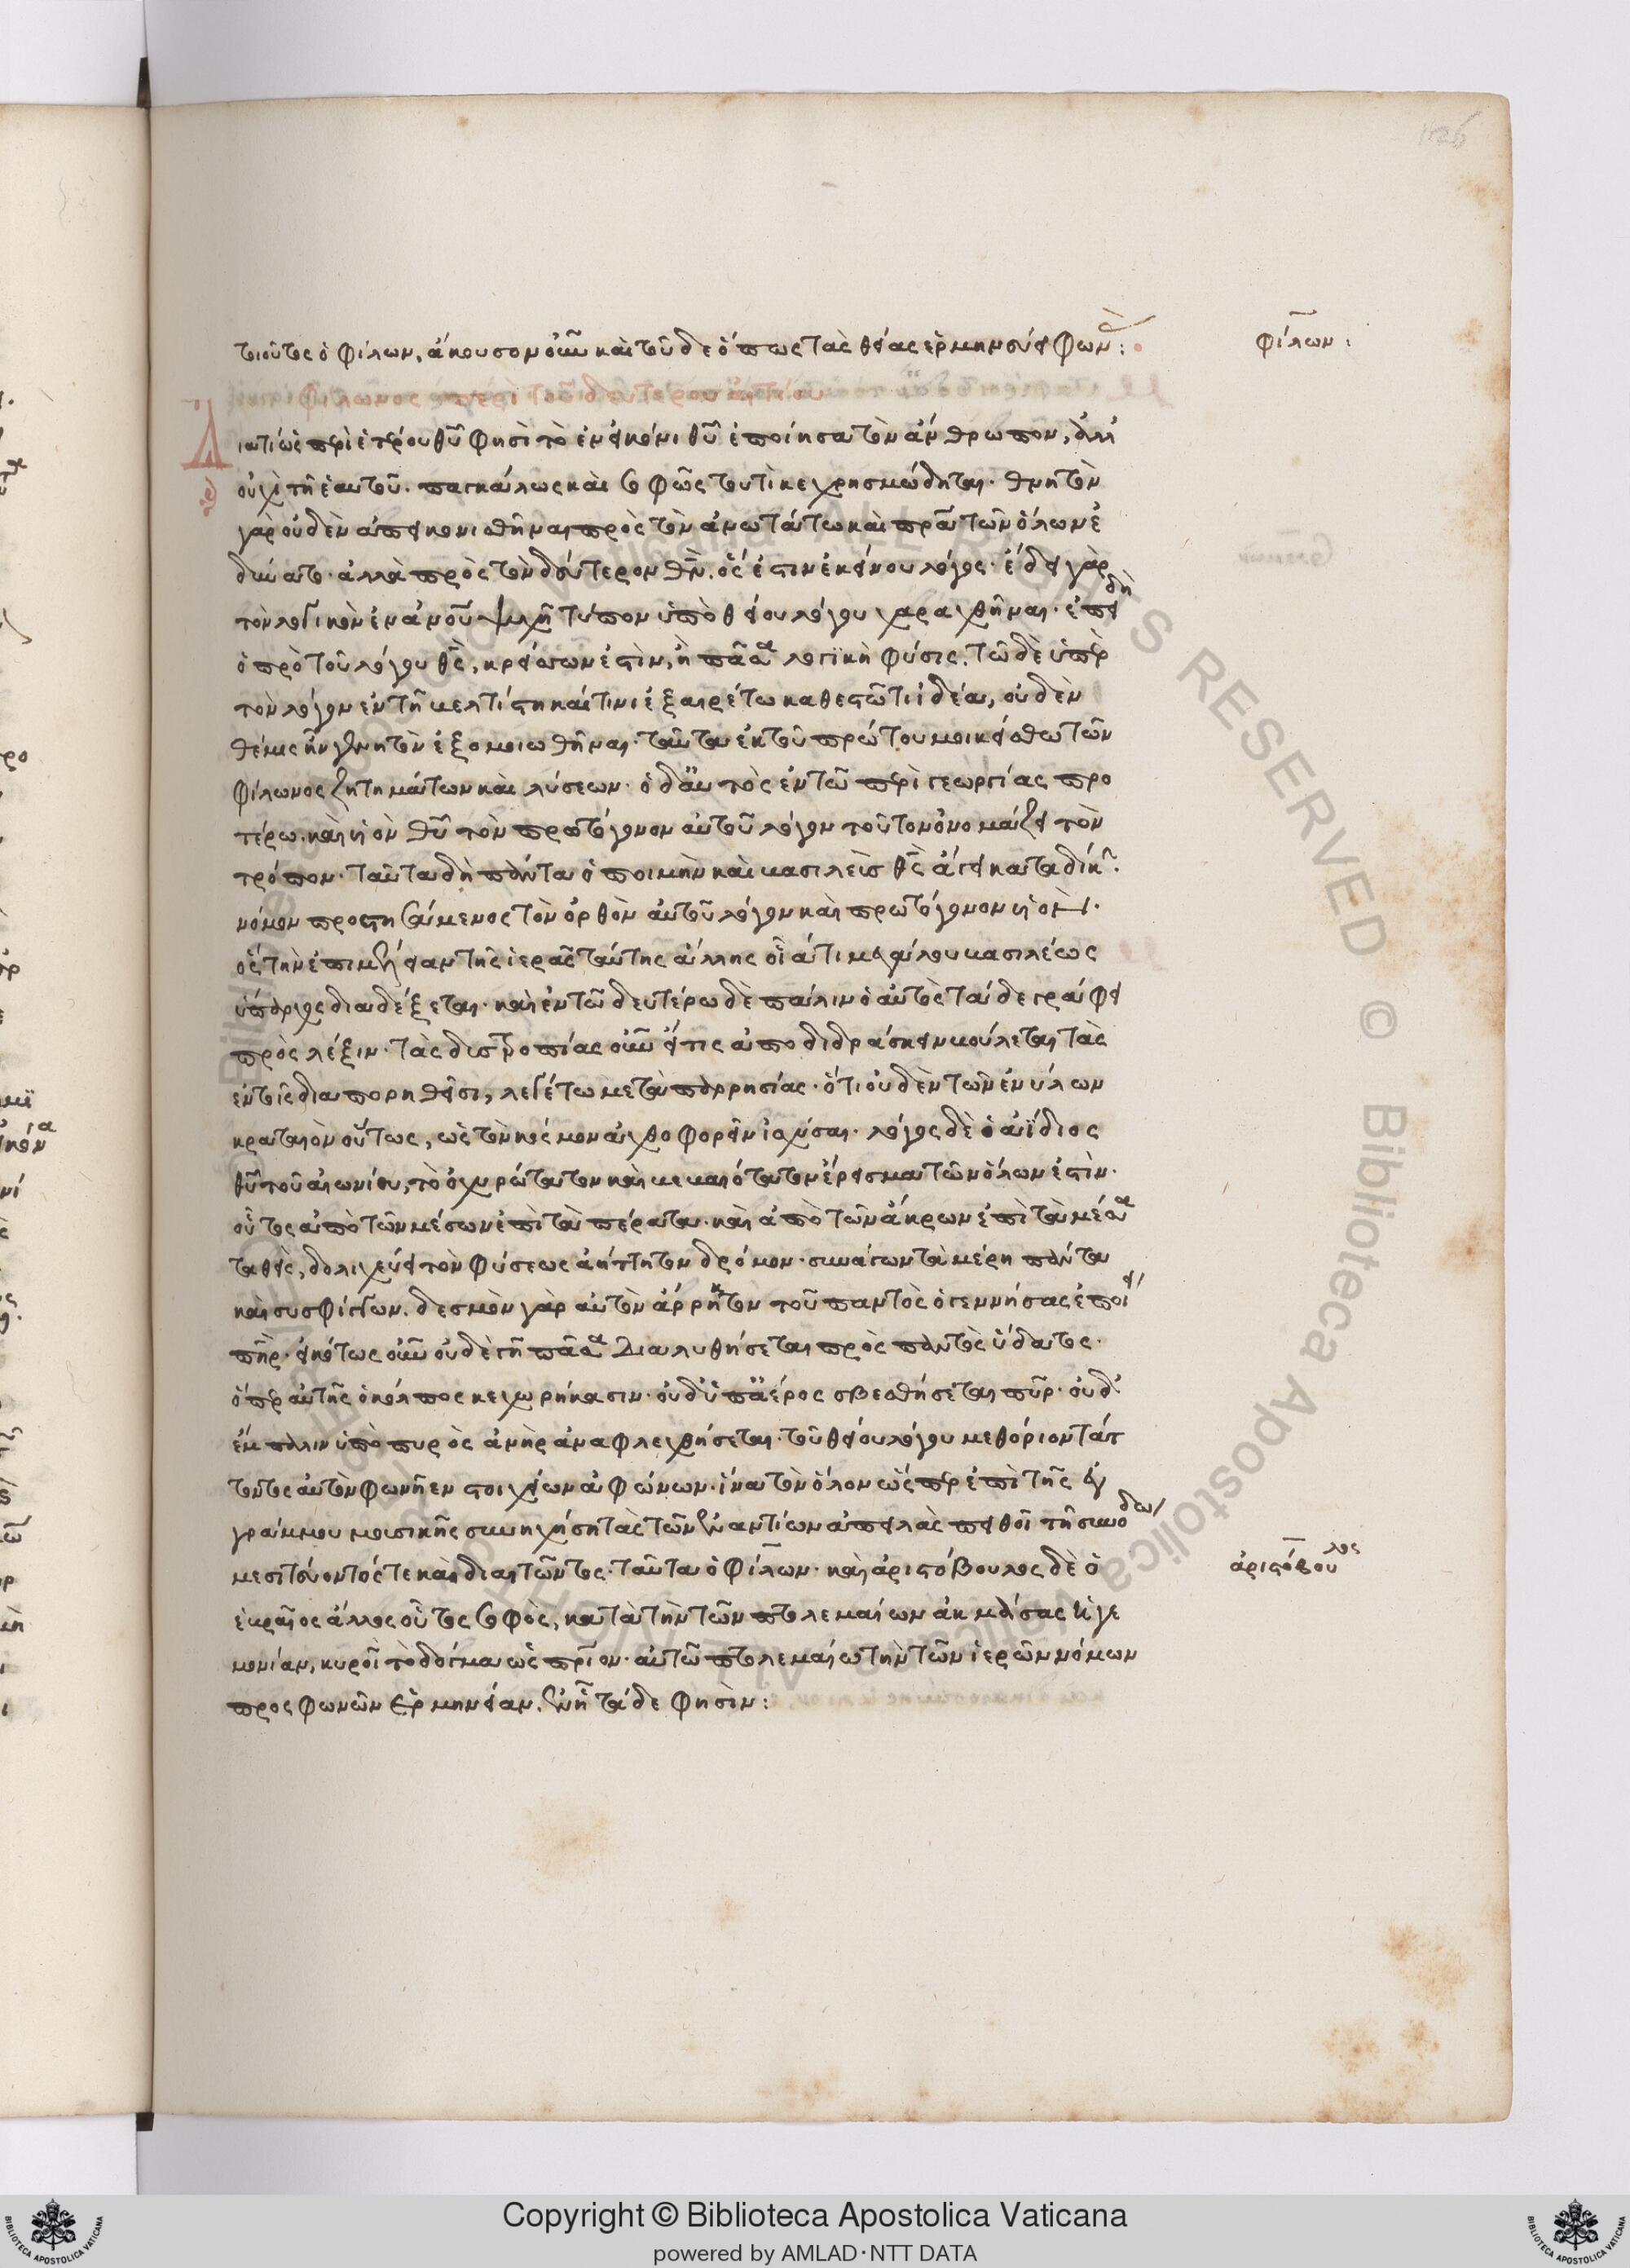 τιοῦτος ὁ φίλων, ἄκουσον οὖν καὶ τοῦδε ὅπως τὰς θείας ἑρμηνεύει φωνὰς:
φίλων:
Φίλωνος περὶ τοῦ δευτέρου αἰτίου
Διατί ὡς περὶ ἑτέρου θῦ φησὶ τὸ ἐν εἰκόνι θῦ ἐποίησα τὸν ἄνθρωπον, ἀλλ'
οὐχὶ τῆ ἑαυτοῦ. παγκάλως καὶ σοφῶς τουτὶ κεχρησμώδηται. θνητὸν
γὰρ οὐδὲν ἀπεικονισθῆναι πρὸς τὸν ἀνωτάτω καὶ πρᾶ τῶν ὅλων ἐ
δύνατο. ἀλλὰ πρὸς τὸν δεύτερον θν. ὅς ἐστιν ἐκείνου λόγος. ἔδει γὰρ
τὸν λογικὸν ἐν ἀνοῦ ψυχῆ τύπον ὑπὸ θείου λόγου χαραχθῆναι. ἐπειδὴ
ὁ πρὸ τοῦ λόγου θς, κρείσσων ἐστὶν, ἢ πᾶσα λογικὴ φύσις. τῶ δὲ ὑπὲρ
τὸν λόγον ἐν τῆ βελτίστη καί τινι ἐξαιρέτω καθεστῶτι ἰδέα, οὐδὲν
θέμις ἦν θνητὸν ἐξομοιωθῆναι. ταῦτα ἐκ τοῦ πρώτου μοι κείσθω τῶν
φίλωνος ζητημάτων καὶ λύσεων. ὁ δ' αὐτὸς ἐν τῶ περὶ γεωργίας προ
τέρω. καὶ υἱὸν θῦ τὸν πρωτόγονον αὐτοῦ λόγον τοῦτον ὀνομάζει τὸν
τρόπον. ταῦτα δὴ πάντα ὁ ποιμὴν καὶ βασιλεὺς θς ἄγει κατὰ δίκ.
νόμον προστησάμενος τὸν ὀρθὸν αὐτοῦ λόγον καὶ πρωτόγονον υἱόν.
ὃς τὴν ἐπιμέλειαν τῆς ἱερᾶς ταύτης ἀγέλης οἷά τι μεγάλου βασιλέως
ὕπαρχος διαδέξεται. καὶ ἐν τῶ δευτέρω δὲ πάλιν ὁ αὐτὸς τάδε γράφει
πρὸς λέξιν. τὰς δυστροπίας οὖν εἴ τις ἀποδιδράσκειν βούλεται τὰς
ἐν τοῖς διαπορηθεῖσι, λεγέτω μετὰ παρρησίας. ὅτι οὐδὲν τῶν ἐν ὑλῶν
κραταιὸν οὕτως, ὡς τὸν κόσμον ἀχθοφορεῖν ἰσχύσαι. λόγος δὲ ὁ ἀΐδιος
θῦ τοῦ αἰωνίου, τὸ ὀχυρώτατον καὶ βεβαιότατον ἔρεισμα τῶν ὅλων ἐστὶν.
οὗτος ἀπὸ τῶν μέσων ἐπὶ τὰ πέρατα. καὶ ἀπὸ τῶν ἄκρων ἐπὶ τὰ μέσα
ταθεὶς, δολιχεύει τὸν φύσεως ἀήττητον δρόμον. συνάγων τὰ μέρη πάντα
καὶ συσφίγγων. δεσμὸν γὰρ αὐτὸν ἄρρηκτον τοῦ παντὸς ὁ γεννήσας ἐποίει
πηρ. εἰκότως οὖν οὐδὲ γῆ πᾶσα διαλυθήσεται πρὸς παντὸς ὕδατος.
ὅπερ αὐτῆς ὁ κόλπος κεχωρήκασιν. οὐδ' ὑπ' ἀέρος σβεσθήσεται πῦρ. οὐδ'
ἔμπαλιν ὑπὸ πυρὸς ἀνὴρ ἀναφλεχθήσεται. τοῦ θείου λόγου μεθόριον τάτ
τοντος αὐτὸν φωνῆεν στοιχείων ἀφώνων. ἵνα τὸν ὅλον ὥσπερ ἐπὶ τῆς ἐγ
γράμμου μουσικῆς συνηχήση τὰς τῶν ἐναντίων ἀπειλὰς πειθοῖ τῆ συνόδω
μεσιτεύοντός τε καὶ διαιτῶντος. ταῦτα ὁ φίλων. καὶ ἀριστόβουλος δὲ ὁ
ἀριστόβουλος
ἑβραῖος ἄλλος οὗτος σοφὸς, κατὰ τὴν τῶν πτολεμαίων ἀκμάσας ἡγε
μονίαν, κυροῖ τὸ δόγμα ὡς πριον. αὐτῶ πτολεμαίω τὴν τῶν ἱερῶν νόμων
προσφωνῶν ἑρμηνείαν. ἐν ἧ τάδε φησὶν: